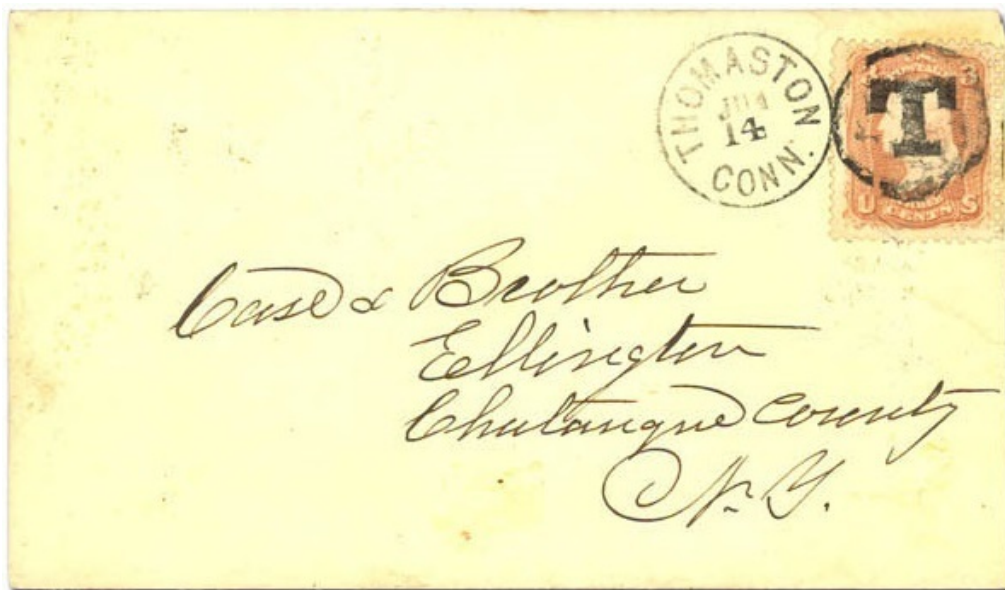 THOMASTON
JUN
14
CONN.
T
3
U S
CENTS
Case & Brother
Ellington
Chutauque County
N. Y.